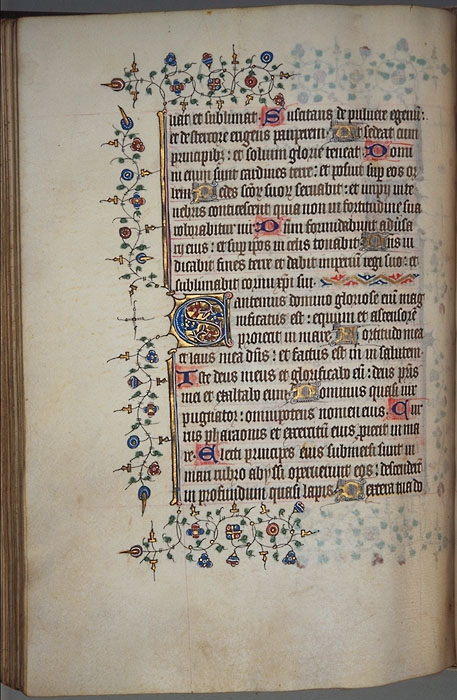 uat et sublimat. Suscitans de puluere egenū:
et de stercore eugens pauperem. Ut sedeat cum
principibꝫ: et solium glorie teneat. Domi
ni enim sunt cardines terre: et posuit sup eos or
bem. Pedes scōr suor seruabit: et impij in te
nebris conticescent quia non in fortitudine sua
roborabitur uir. Dnm formidabunt aduersa
rij eius: et sup ipos in celis tonabit. Dns iu
dicabit fines terre et dabit imperiū regi suo: et
sublimabit cornu xp̄i sui.
Cantemus domino gloriose eni mag
nificatus est: equum et ascensorē
proiecit in mare. Fortitudo mea
et laus mea dn̄s: et factus est m in salutem.
Iste deus meus et glorificabo eū: deus pr̄is
mei et exaltabo eum. Dominus quasi uir
pugnator: omnipotens nomen eius. Cur
rus pharaonis et exercitū eius proiecit in ma
re. Electi principes eius submersi sunt in
mari rubro abyssi operuerunt eos: descenderūt
in profundum quasi lapis. Dextera tua do